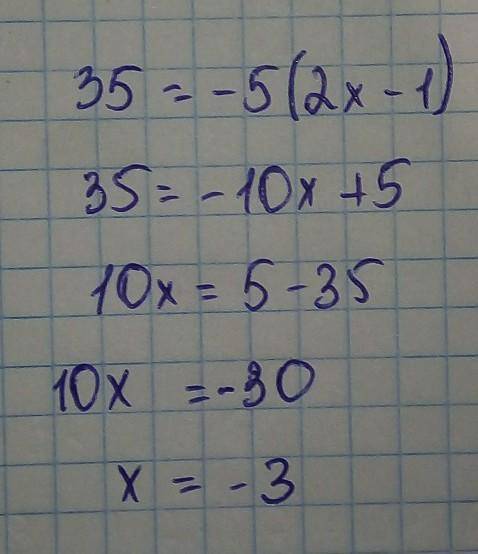 35 = -5(2x - 1)
35 = -10x + 5
10x = 5 - 35
10x = -30
x = -3